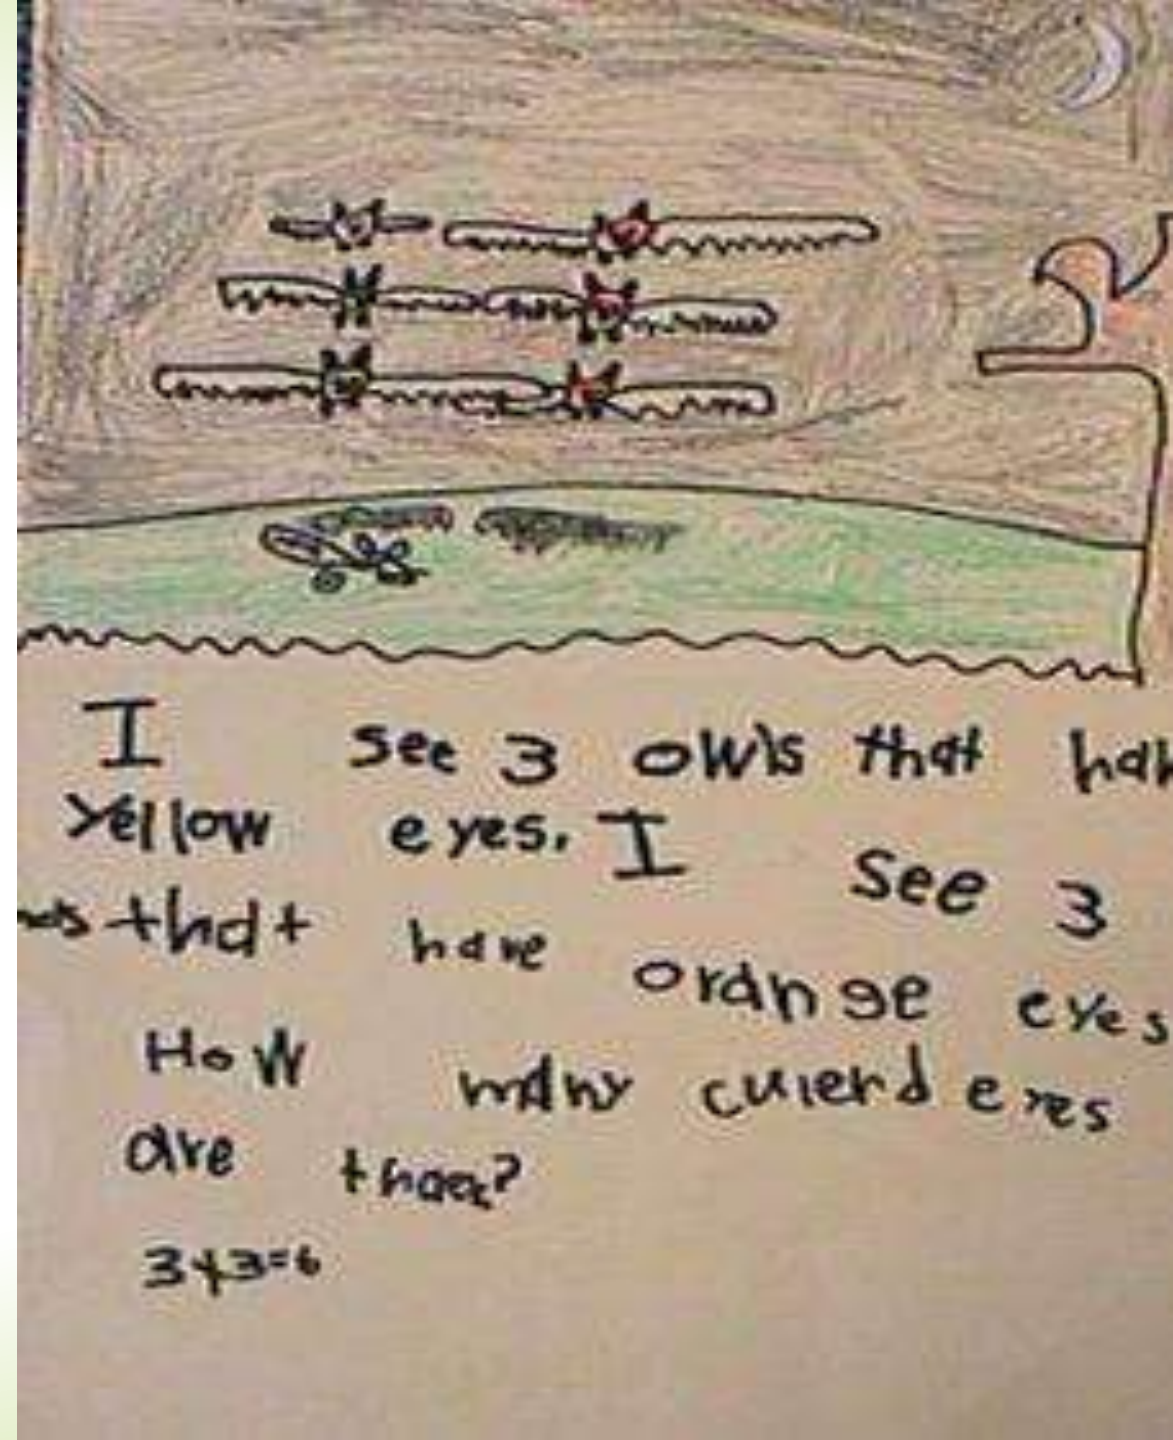 I see 3 owls that hav
yellow eyes. I see 3
that have orange eyes
How many culerd eyes
are thaer?
3+3=6